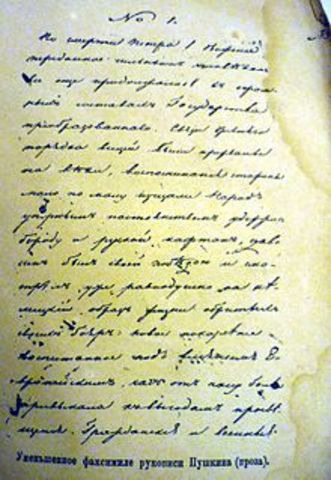 № 1.
По смерти Петра I движение
переданное сильнымъ человѣкомъ
все еще продолжалось въ огром
ныхъ составахъ Государства
преобразованнаго. Связи древняго
порядка вещей были прерваны
на вѣки; воспоминанія старины
мало по малу исчезали. Народъ
упорнымъ постоянствомъ удержавъ
бороду и русской кафтанъ, дово
ленъ былъ своей побѣдою и смо
трѣлъ уже равнодушно на нѣ
мецкій образъ жизни обритыхъ
своихъ бояръ. Новое поколѣніе
воспитанное подъ вліяніемъ Е
вропейскимъ, часъ отъ часу болѣе
привыкало къ выгодамъ просвѣ
щенія. Гражданскіе и военные
Уменьшенное факсимиле рукописи Пушкина (проза).